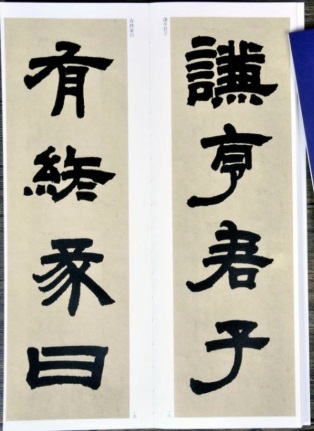 謙亨君子
有終彖曰